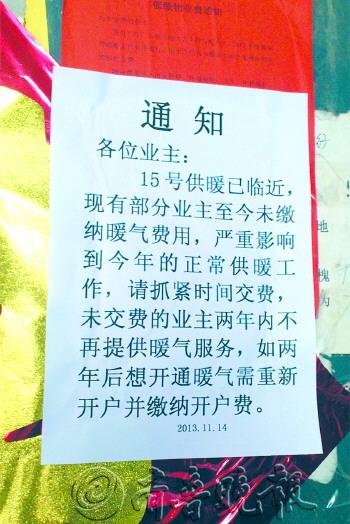 催缴物业费通知
通 知
各位业主：
15号供暖已临近，
现有部分业主至今未缴
纳暖气费用，严重影响
到今年的正常供暖工
作，请抓紧时间交费，
未交费的业主两年内不
再提供暖气服务，如两
年后想开通暖气需重新
开户并缴纳开户费。
2013.11.14
地
槐
@齐鲁晚报